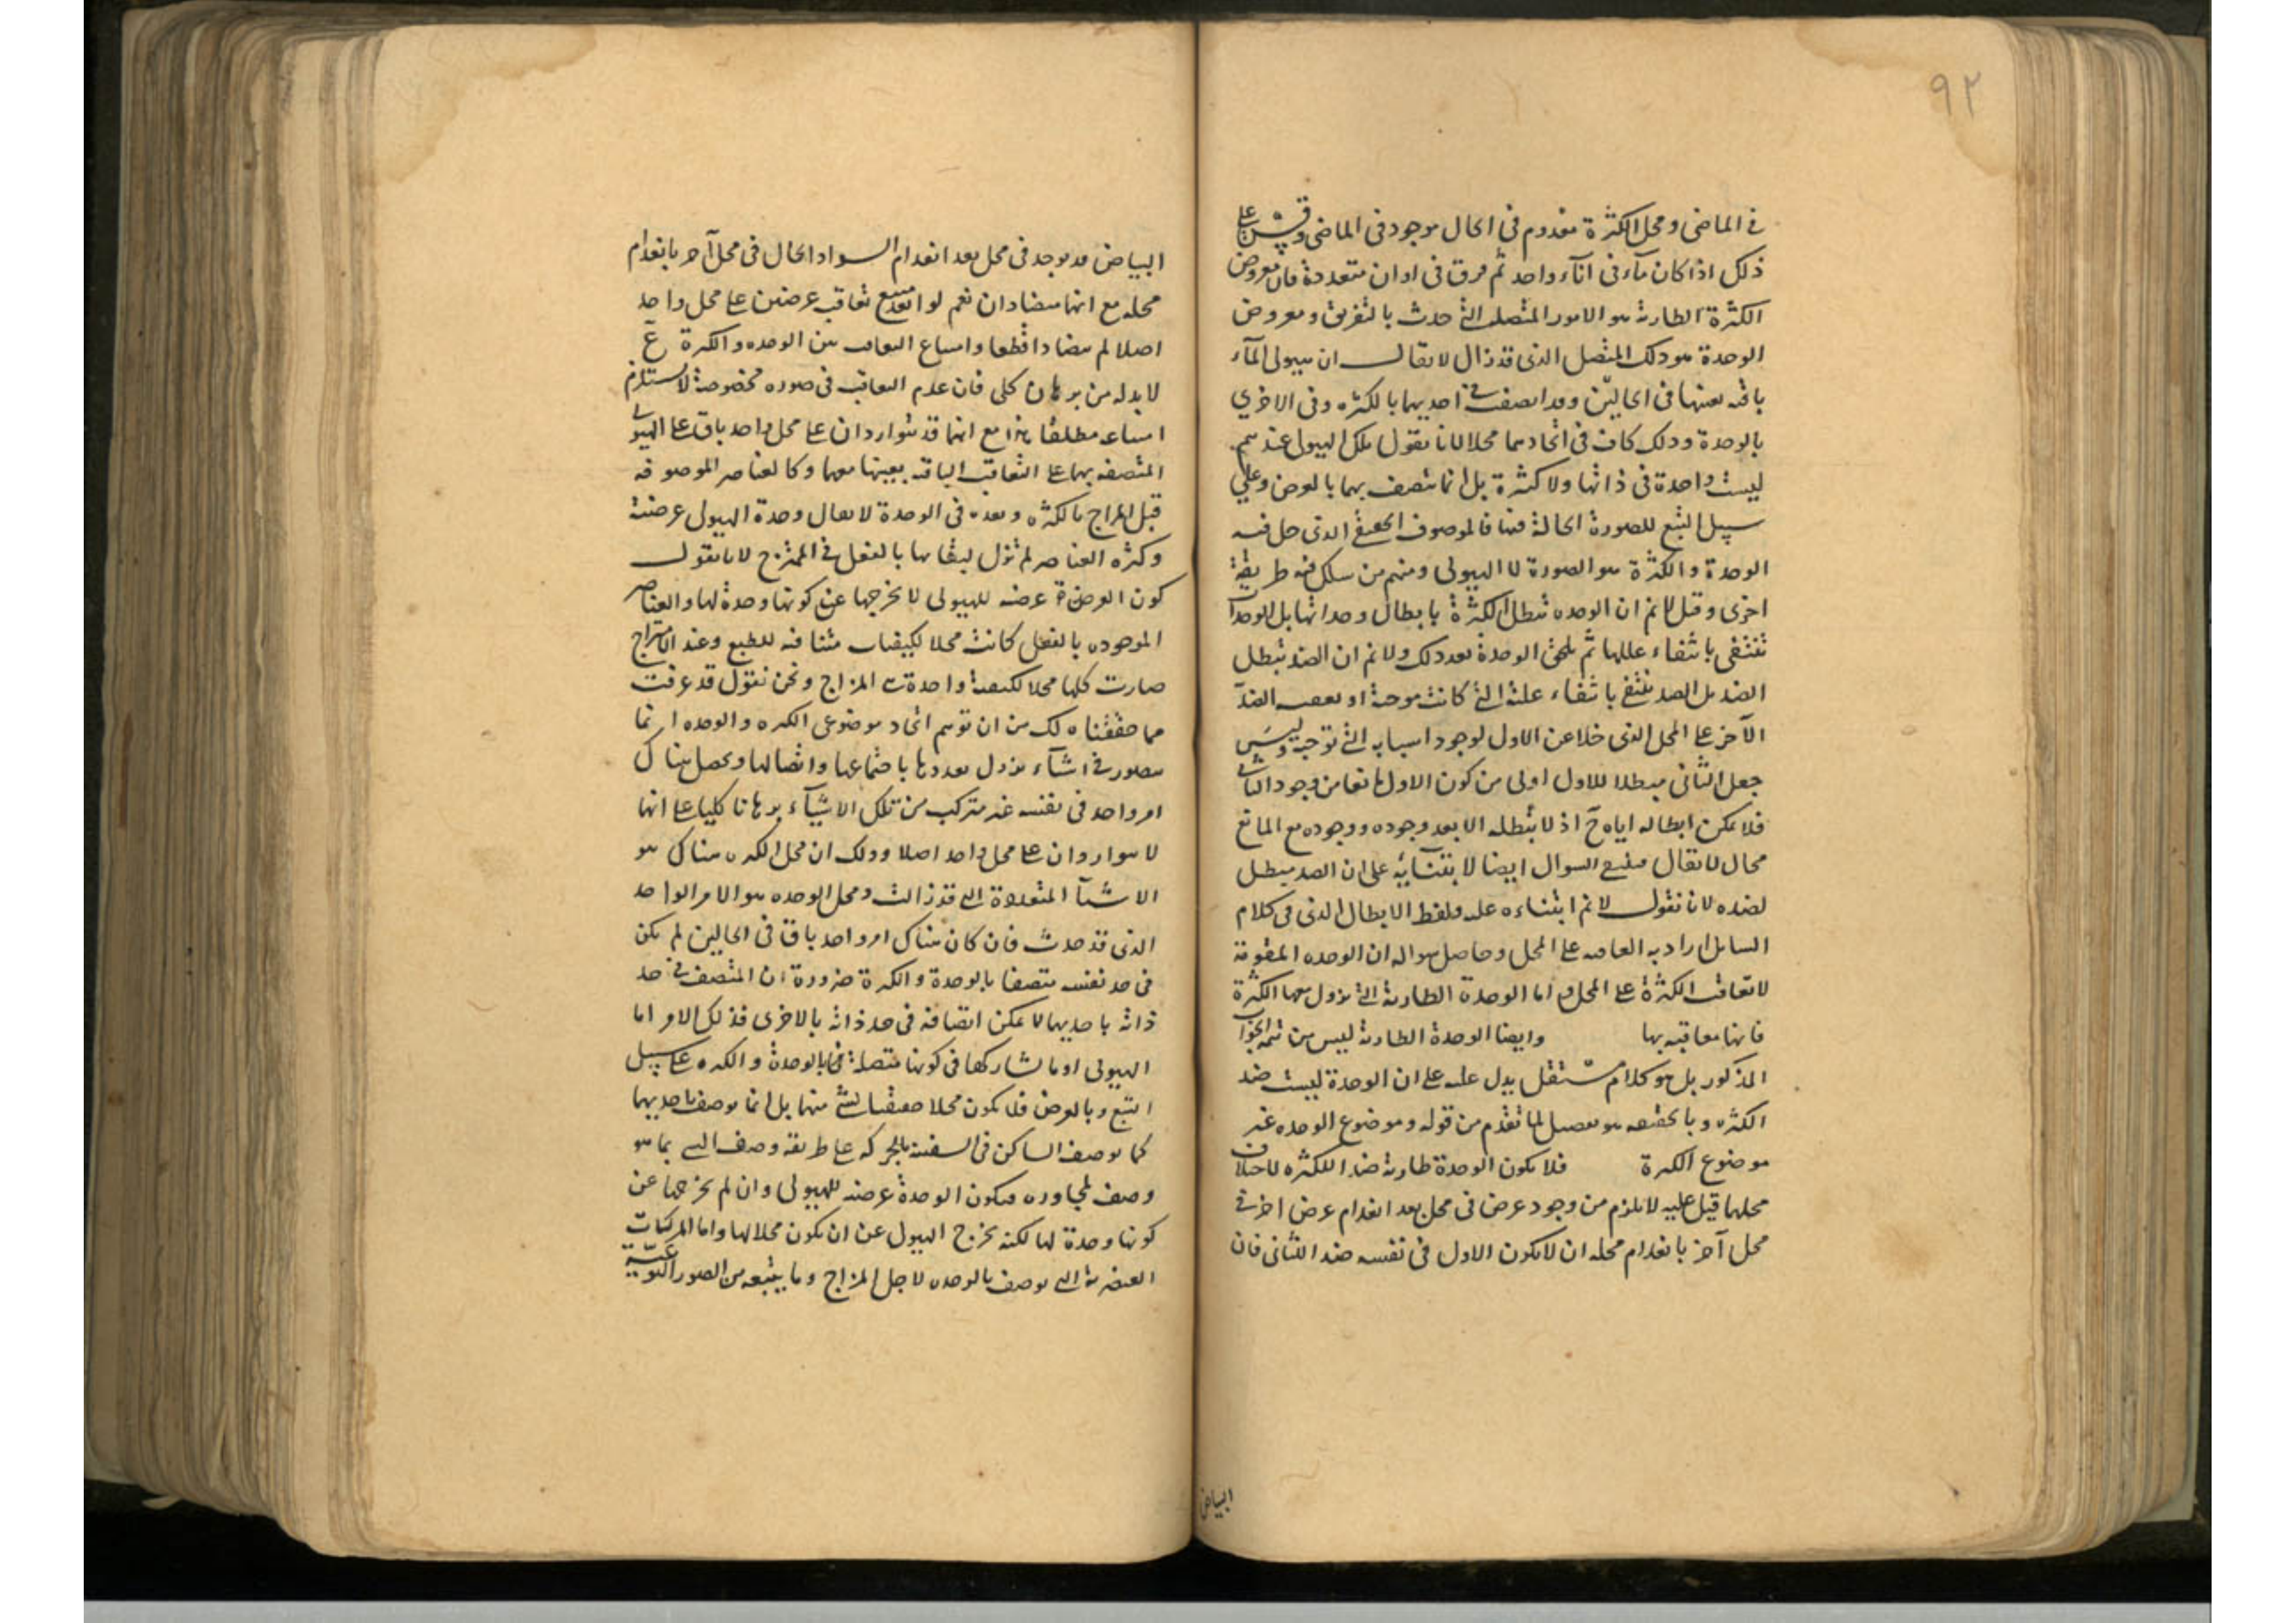 ٩٢
فى الماضى ومحل الكثرة معدوم فى الحال موجود فى الماضى وقس على
ذلك اذا كان ماء فى اناء واحد ثم فرق فى اوان متعددة فان معروض
الكثرة الطارية هو الامور المتصلة التى حدثت بالتفريق ومعروض
الوحدة هو ذلك المتصل الذى قد زال لا يقال ان هيولى الماء
باقية بعينها فى الحالين وقد اتصفت فى احديهما بالكثرة وفى الاخرى
بالوحدة وذلك كاف فى اتحادهما محلا لانا نقول تلك الهيولى عندهم
ليست واحدة فى ذاتها ولا كثيرة بل انما تتصف بهما بالعرض وعلى
سبيل التبع للصورة الحالة فيها فالموصوف الحقيقى الذى حل فيه
الوحدة والكثرة هو الصورة لا الهيولى ومنهم من سلك فيه طريقة
اخرى وقال لانم ان الوحدة تبطل الكثرة بابطال وحداتها بل الوحدات
تنتفى بانتفاء عللها ثم تلحق الوحدة بعد ذلك ولانم ان الضد يبطل
الضد بل الضد ينتفى بانتفاء علته التى كانت موجبة او يعقب الضد
الآخر على المحل الذى خلا عن الاول لوجود اسبابه التى توجبه وليس
جعل الثانى مبطلا للاول اولى من كون الاول مانعا من وجود الثانى
فلا يمكن ابطاله اياه ح اذ لا يبطله الا بعد وجوده ووجوده مع المانع
محال لا يقال السوال ايضا لابتنائه على ان الضد مبطل
لضده لانا نقول لانم ابتناءه عليه ولفظ الابطال الذى فى كلام
السائل اراد به التعاقب على المحل وحاصل سواله ان الوحدة المقومة
لا تعاقب الكثرة على المحل واما الوحدة الطارية التى تزول معها الكثرة
فانها معاقبة بها وايضا الوحدة الطارية ليس من تتمة الجواب
المذكور بل هو كلام مستقل يدل عليه على ان الوحدة ليست ضد
الكثرة وبالحقيقة هو تفصيل لما تقدم من قوله وموضوع الوحدة غير
موضوع الكثرة فلا يكون الوحدة طارية ضدا للكثرة لاختلاف
محلهما قيل عليه لا يلزم من وجود عرض فى محل بعد انعدام عرض اخر فى
محل آخر بانعدام محله ان لا يكون الاول فى نفسه ضدا للثانى فان
البياض
البياض قد يوجد فى محل بعد انعدام السواد الحال فى محل آخر بانعدام
محله مع انهما متضادان نعم لو امتنع تعاقب عرضين على محل واحد
اصلا لم يتضادا قطعا وامتناع التعاقب بين الوحدة والكثرة
لا بد له من برهان كلى فان عدم التعاقب فى صورة مخصوصة لا يستلزم
امتناعه مطلقا هذا مع انهما قد يتواردان على محل واحد باق كالهيولى
المتصفة بهما على التعاقب الباقية بعينها معهما وكالعناصر الموصوفة
قبل المزاج بالكثرة وبعده فى الوحدة لا يقال وحدة الهيولى عرضية
وكثرة العناصر لم تزل لبقائها بالفعل فى الممتزج لانا نقول
كون الوحدة عرضية للهيولى لا يخرجها عن كونها وحدة لها والعناصر
الموجودة بالفعل كانت محلا لكيفيات متنافية للطبع وعند الامتزاج
صارت كلها محلا لكيفية واحدة هى المزاج ونحن نقول قد عرفت
مما حققناه لك من ان توهم اتحاد موضوعى الكثرة والوحدة انما
يتصور فى اشياء يزول تعددها باجتماعها واتصالها ويحصل هناك
امر واحد فى نفسه غير متركب من تلك الاشياء برهانا كليا على انهما
لا يتواردان على محل واحد اصلا وذلك ان محل الكثرة هناك هو
الاشياء المتعددة التى قد زالت ومحل الوحدة هو الامر الواحد
الذى قد حدث فان كان هناك امر واحد باق فى الحالين لم يكن
فى حد نفسه متصفا بالوحدة والكثرة ضرورة ان المتصف فى حد
ذاته باحديهما لا يمكن اتصافه فى حد ذاته بالاخرى فذلك الامر اما
الهيولى او ما يشاركها فى كونها متصفة بالوحدة والكثرة على سبيل
التبع وبالعرض فلا يكون محلا حقيقيا لشئ منهما بل انما يوصف باحديهما
كما يوصف الساكن فى السفينة بالحركة على طريقة وصف الشئ بما هو
وصف لمجاوره فيكون الوحدة عرضية للهيولى وان لم يخرجها عن
كونها وحدة لها لكنه يخرج الهيولى عن ان يكون محلا لها واما المركبات
العنصرية التى توصف بالوحدة لاجل المزاج وما يتبعه من الصور النوعية